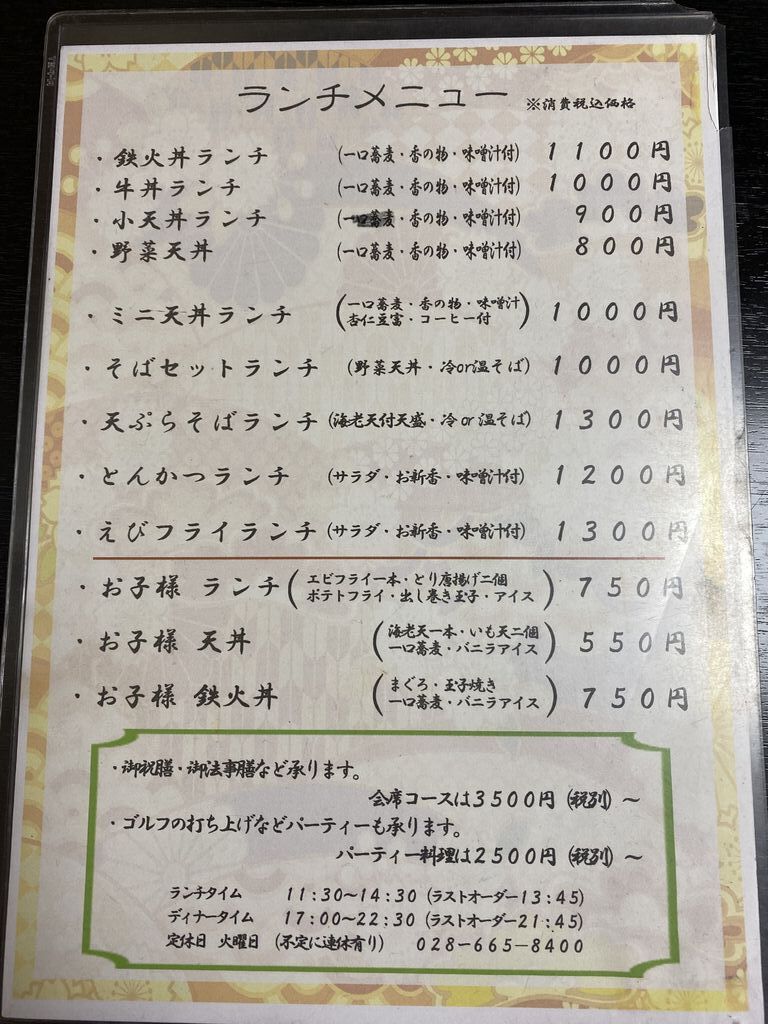 ランチメニュー ※消費税込価格
・鉄火丼ランチ (一口蕎麦・香の物・味噌汁付) 1100円
・牛丼ランチ (一口蕎麦・香の物・味噌汁付) 1000円
・小天丼ランチ (一口蕎麦・香の物・味噌汁付) 900円
・野菜天丼 (一口蕎麦・香の物・味噌汁付) 800円
・ミニ天丼ランチ (一口蕎麦・香の物・味噌汁
杏仁豆富・コーヒー付) 1000円
・そばセットランチ (野菜天丼・冷or温そば) 1000円
・天ぷらそばランチ (海老天付天盛・冷or温そば) 1300円
・とんかつランチ (サラダ・お新香・味噌汁付) 1200円
・えびフライランチ (サラダ・お新香・味噌汁付) 1300円
・お子様 ランチ (エビフライ一本・とり唐揚げ二個
ポテトフライ・出し巻き玉子・アイス) 750円
・お子様 天丼 (海老天一本・いも天二個
一口蕎麦・バニラアイス) 550円
・お子様 鉄火丼 (まぐろ・玉子焼き
一口蕎麦・バニラアイス) 750円
・御祝膳・御法事膳など承ります。
会席コースは3500円(税別)～
・ゴルフの打ち上げなどパーティーも承ります。
パーティー料理は2500円(税別)～
ランチタイム 11:30～14:30 (ラストオーダー13:45)
ディナータイム 17:00～22:30 (ラストオーダー21:45)
定休日 火曜日 (不定に連休有り) 028-665-8400